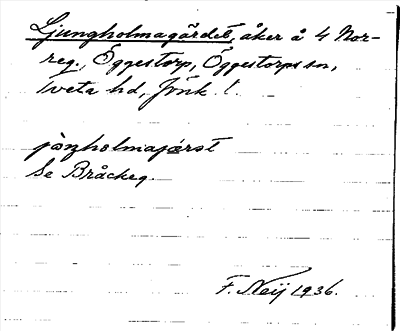 Ljungholmagärdet, åker å 4 Nor-
reg., Öggestorp, Öggestorps sn,
Tveta hd, Jönk. l.
Se Bråckeg.
F. Neij 1936.